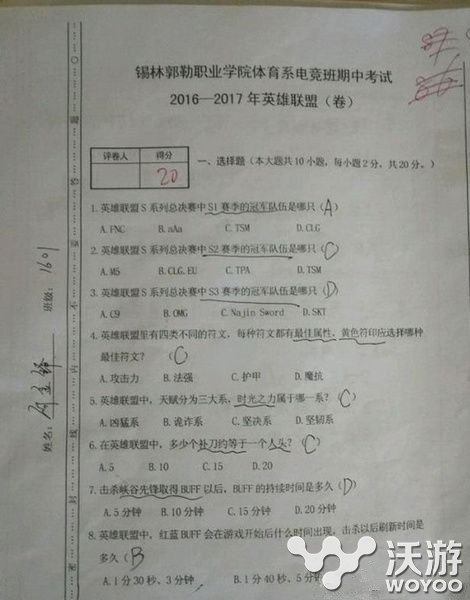 锡林郭勒职业学院体育系电竞班期中考试
2016—2017年英雄联盟（卷）
评卷人 得分
20
一、选择题（本大题共10小题，每小题2分，共20分。）
1.英雄联盟S系列总决赛中S1赛季的冠军队伍是哪只（A）
A.FNC B.aAa C.TSM D.CLG
2.英雄联盟S系列总决赛中S2赛季的冠军队伍是哪只（C）
A.M5 B.CLG.EU C.TPA D.TSM
3.英雄联盟S系列总决赛中S3赛季的冠军队伍是哪只（D）
A.C9 B.OMG C.Najin Sword D.SKT
4.英雄联盟里有四类不同的符文，每种符文都有最佳属性，黄色符印应选择哪种
最佳符文？（C）
A.攻击力 B.法强 C.护甲 D.魔抗
5.英雄联盟中，天赋分为三大系，时光之力属于哪一系？（C）
A.凶猛系 B.诡诈系 C.坚决系 D.坚韧系
6.在英雄联盟中，多少个补刀约等于一个人头？（C）
A.5 B.10 C.15 D.20
7.击杀峡谷先锋取得BUFF以后，BUFF的持续时间是多久（D）
A.5分钟 B.10分钟 C.15分钟 D.20分钟
8.英雄联盟中，红蓝BUFF会在游戏开始后什么时间出现，击杀以后刷新时间是
多久（B）
A.1分30秒、3分钟 B.1分40秒、5分钟
班级：1601
姓名：
密 封 线 内 不 要 答 题
沃游
WOYOO